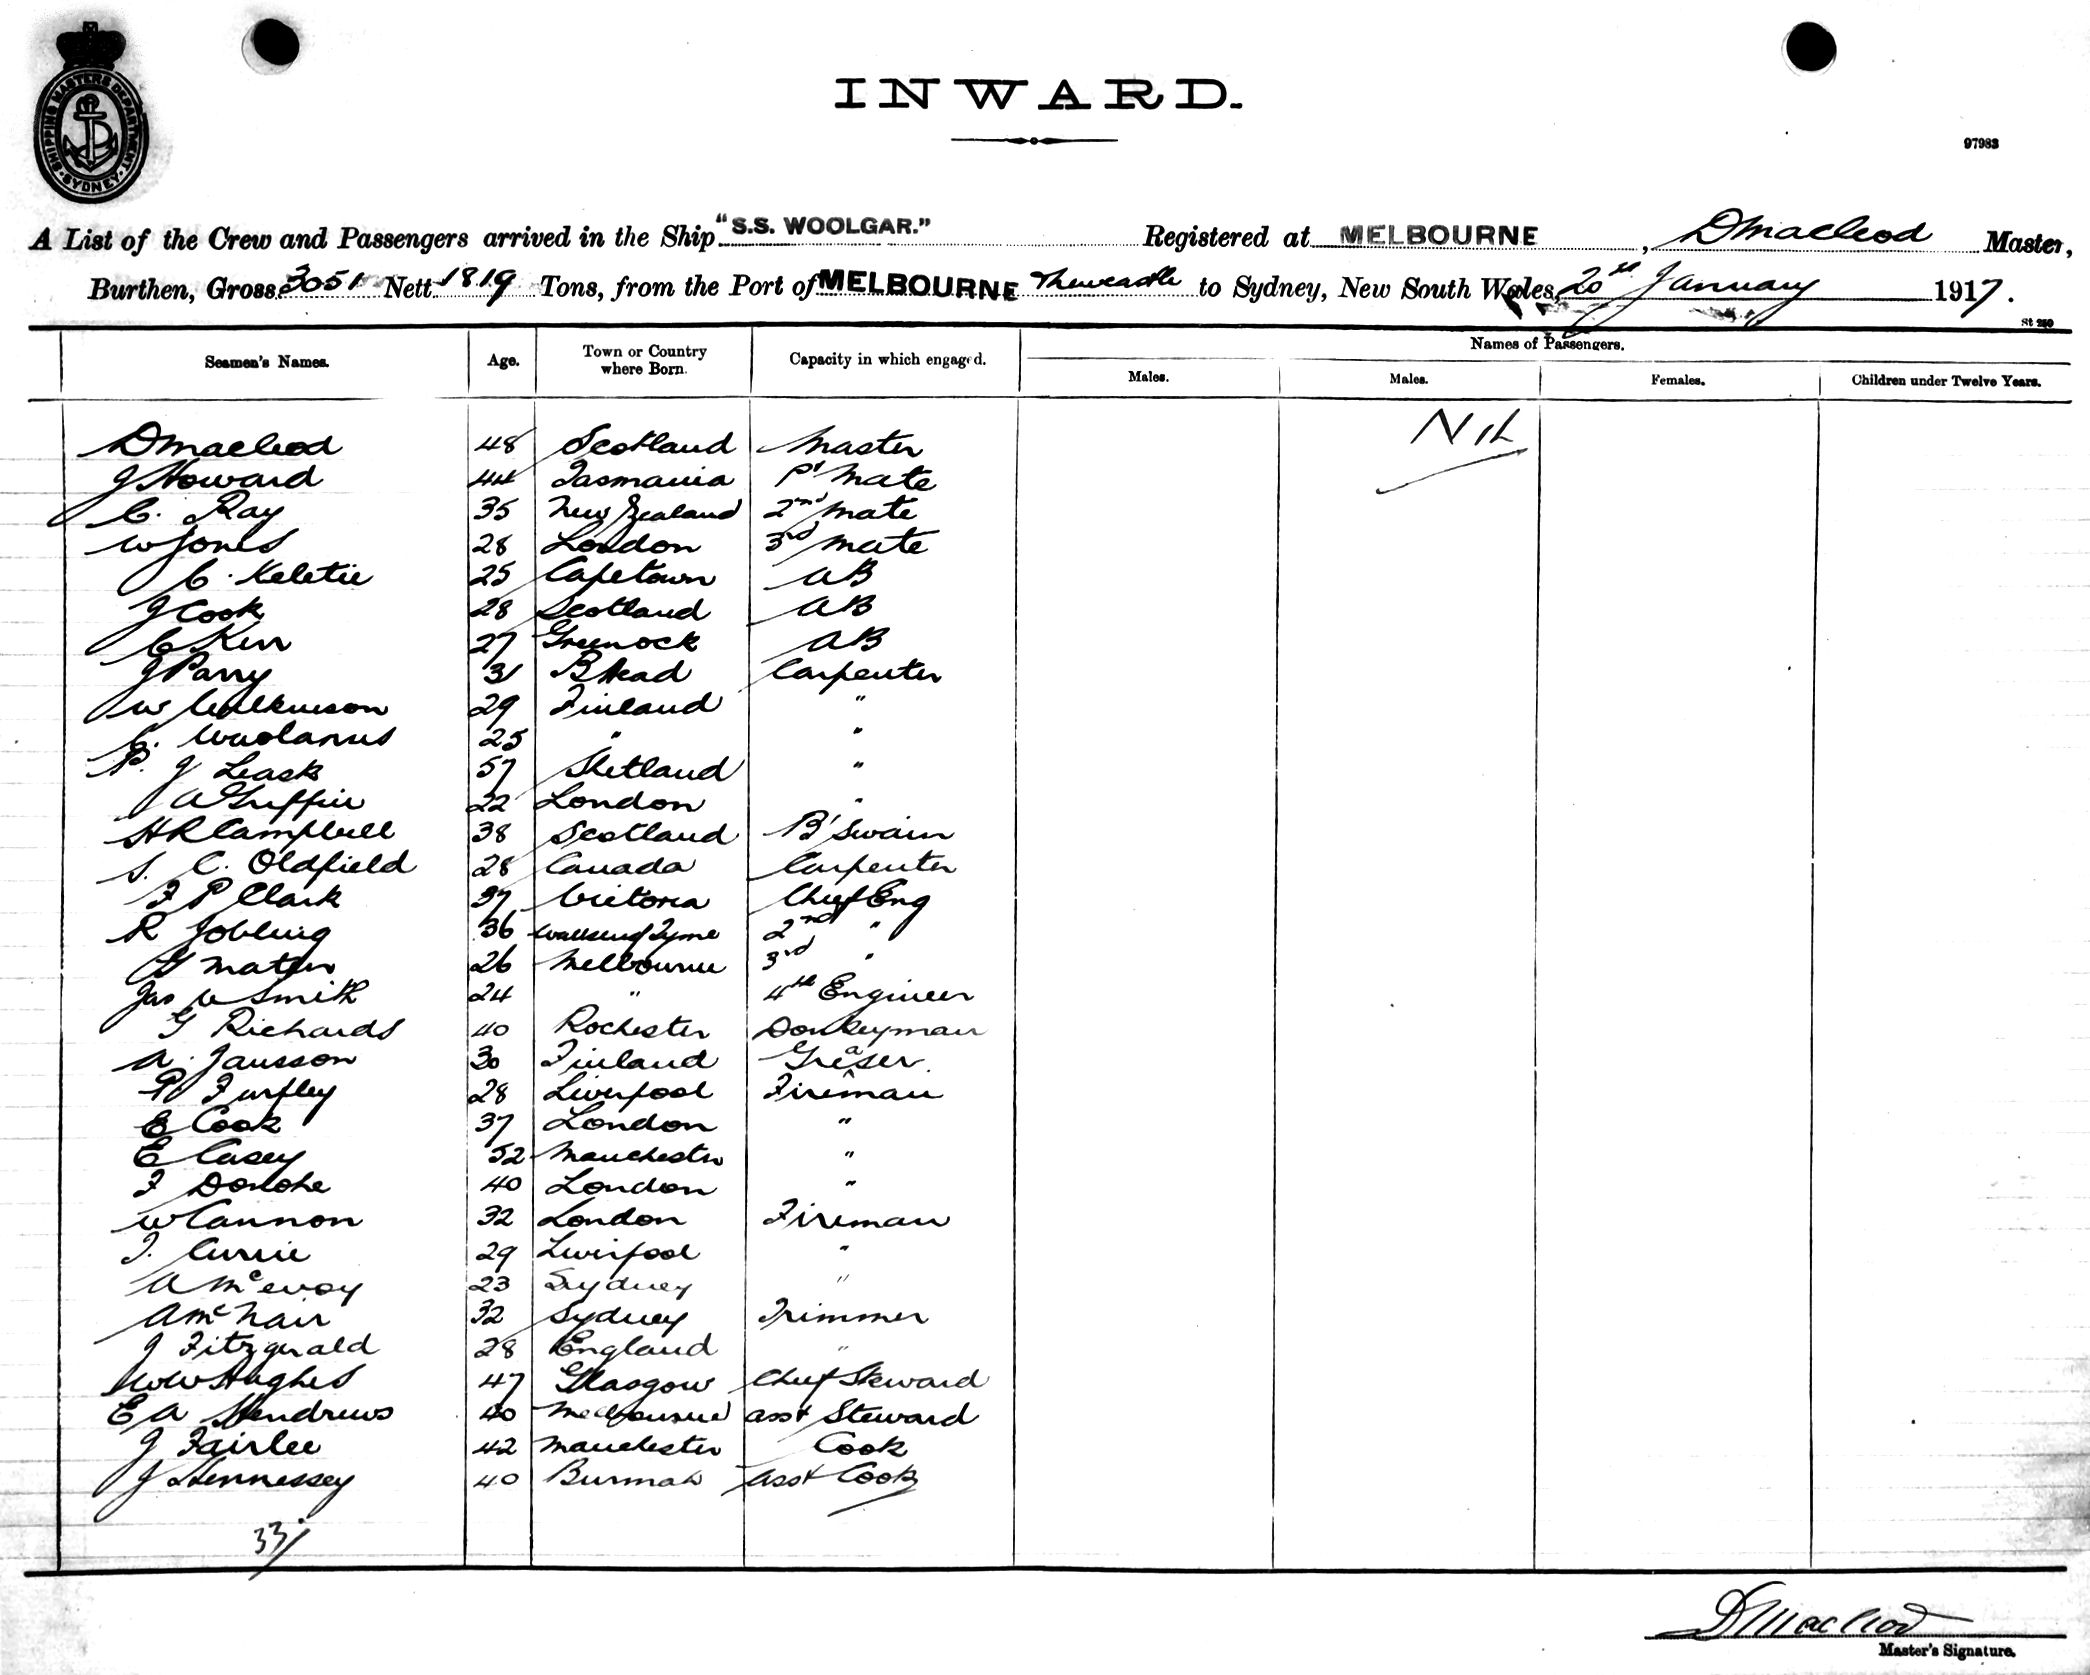 SHIPPING MASTERS DEPARTMENT
SYDNEY
INWARD.
97983
A List of the Crew and Passengers arrived in the Ship "S.S. WOOLGAR." Registered at MELBOURNE, D Macleod Master,
Burthen, Gross 3051 Nett 1819 Tons, from the Port of MELBOURNE Newcastle to Sydney, New South Wales, 20th January 1917.
St 250
Seamen's Names. Age. Town or Country where Born. Capacity in which engaged. Names of Passengers.
Males. Males. Females. Children under Twelve Years.
Nil
D Macleod 48 Scotland Master
J Howard 44 Tasmania 1st Mate
C. Ray 35 New Zealand 2nd Mate
W Jones 28 London 3rd Mate
C. Keletie 25 Capetown AB
J Cook 28 Scotland AB
C Kerr 27 Greenock AB
J Parry 31 B Head Carpenter
W Wilkinson 29 Finland "
C. 25 " "
P. J Leask 57 Shetland "
A Griffin 22 London "
H R Campbell 38 Scotland B'Swain
S. C. Oldfield 28 Canada Carpenter
F P Clark 37 Victoria Chief Eng
R Jobling 36 Wallsend Tyne 2nd "
G Maten 26 Melbourne 3rd "
Jas W Smith 24 " 4th Engineer
G Richards 40 Rochester Donkeyman
A. Jansson 30 Finland Greaser.
P Furfley 28 Liverpool Fireman
E Cook 37 London "
E Casey 52 Manchester "
F Donohe 40 London "
W Cannon 32 London Fireman
J. Currie 29 Liverpool "
A McEvoy 23 Sydney "
A McNair 32 Sydney Trimmer
J Fitzgerald 28 England "
W W Hughes 47 Glasgow Chief Steward
E A Hendrews 40 Melbourne Asst Steward
J Fairlee 42 Manchester Cook
J Hennessey 40 Burmah Asst Cook
33/
D Macleod
Master's Signature.